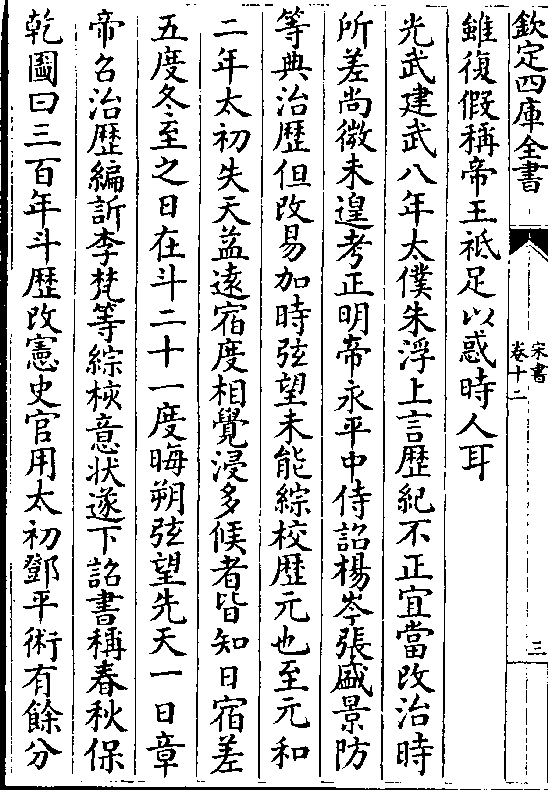 欽定四庫全書
宋書
卷十二
三
雖復假稱帝王祗足以惑時人耳
光武建武八年太僕朱浮上言歷紀不正宜當改治時
所差尚微未遑考正明帝永平中侍詔楊岑張盛景防
等典治歷但改易加時弦望未能綜校歷元也至元和
二年太初失天益遠宿度相覺浸多候者皆知日宿差
五度冬至之日在斗二十一度晦朔弦望先天一日章
帝召治歷編訢李梵等綜核意状遂下詔書稱春秋保
乾圖曰三百年斗歷改憲史官用太初鄧平術有餘分